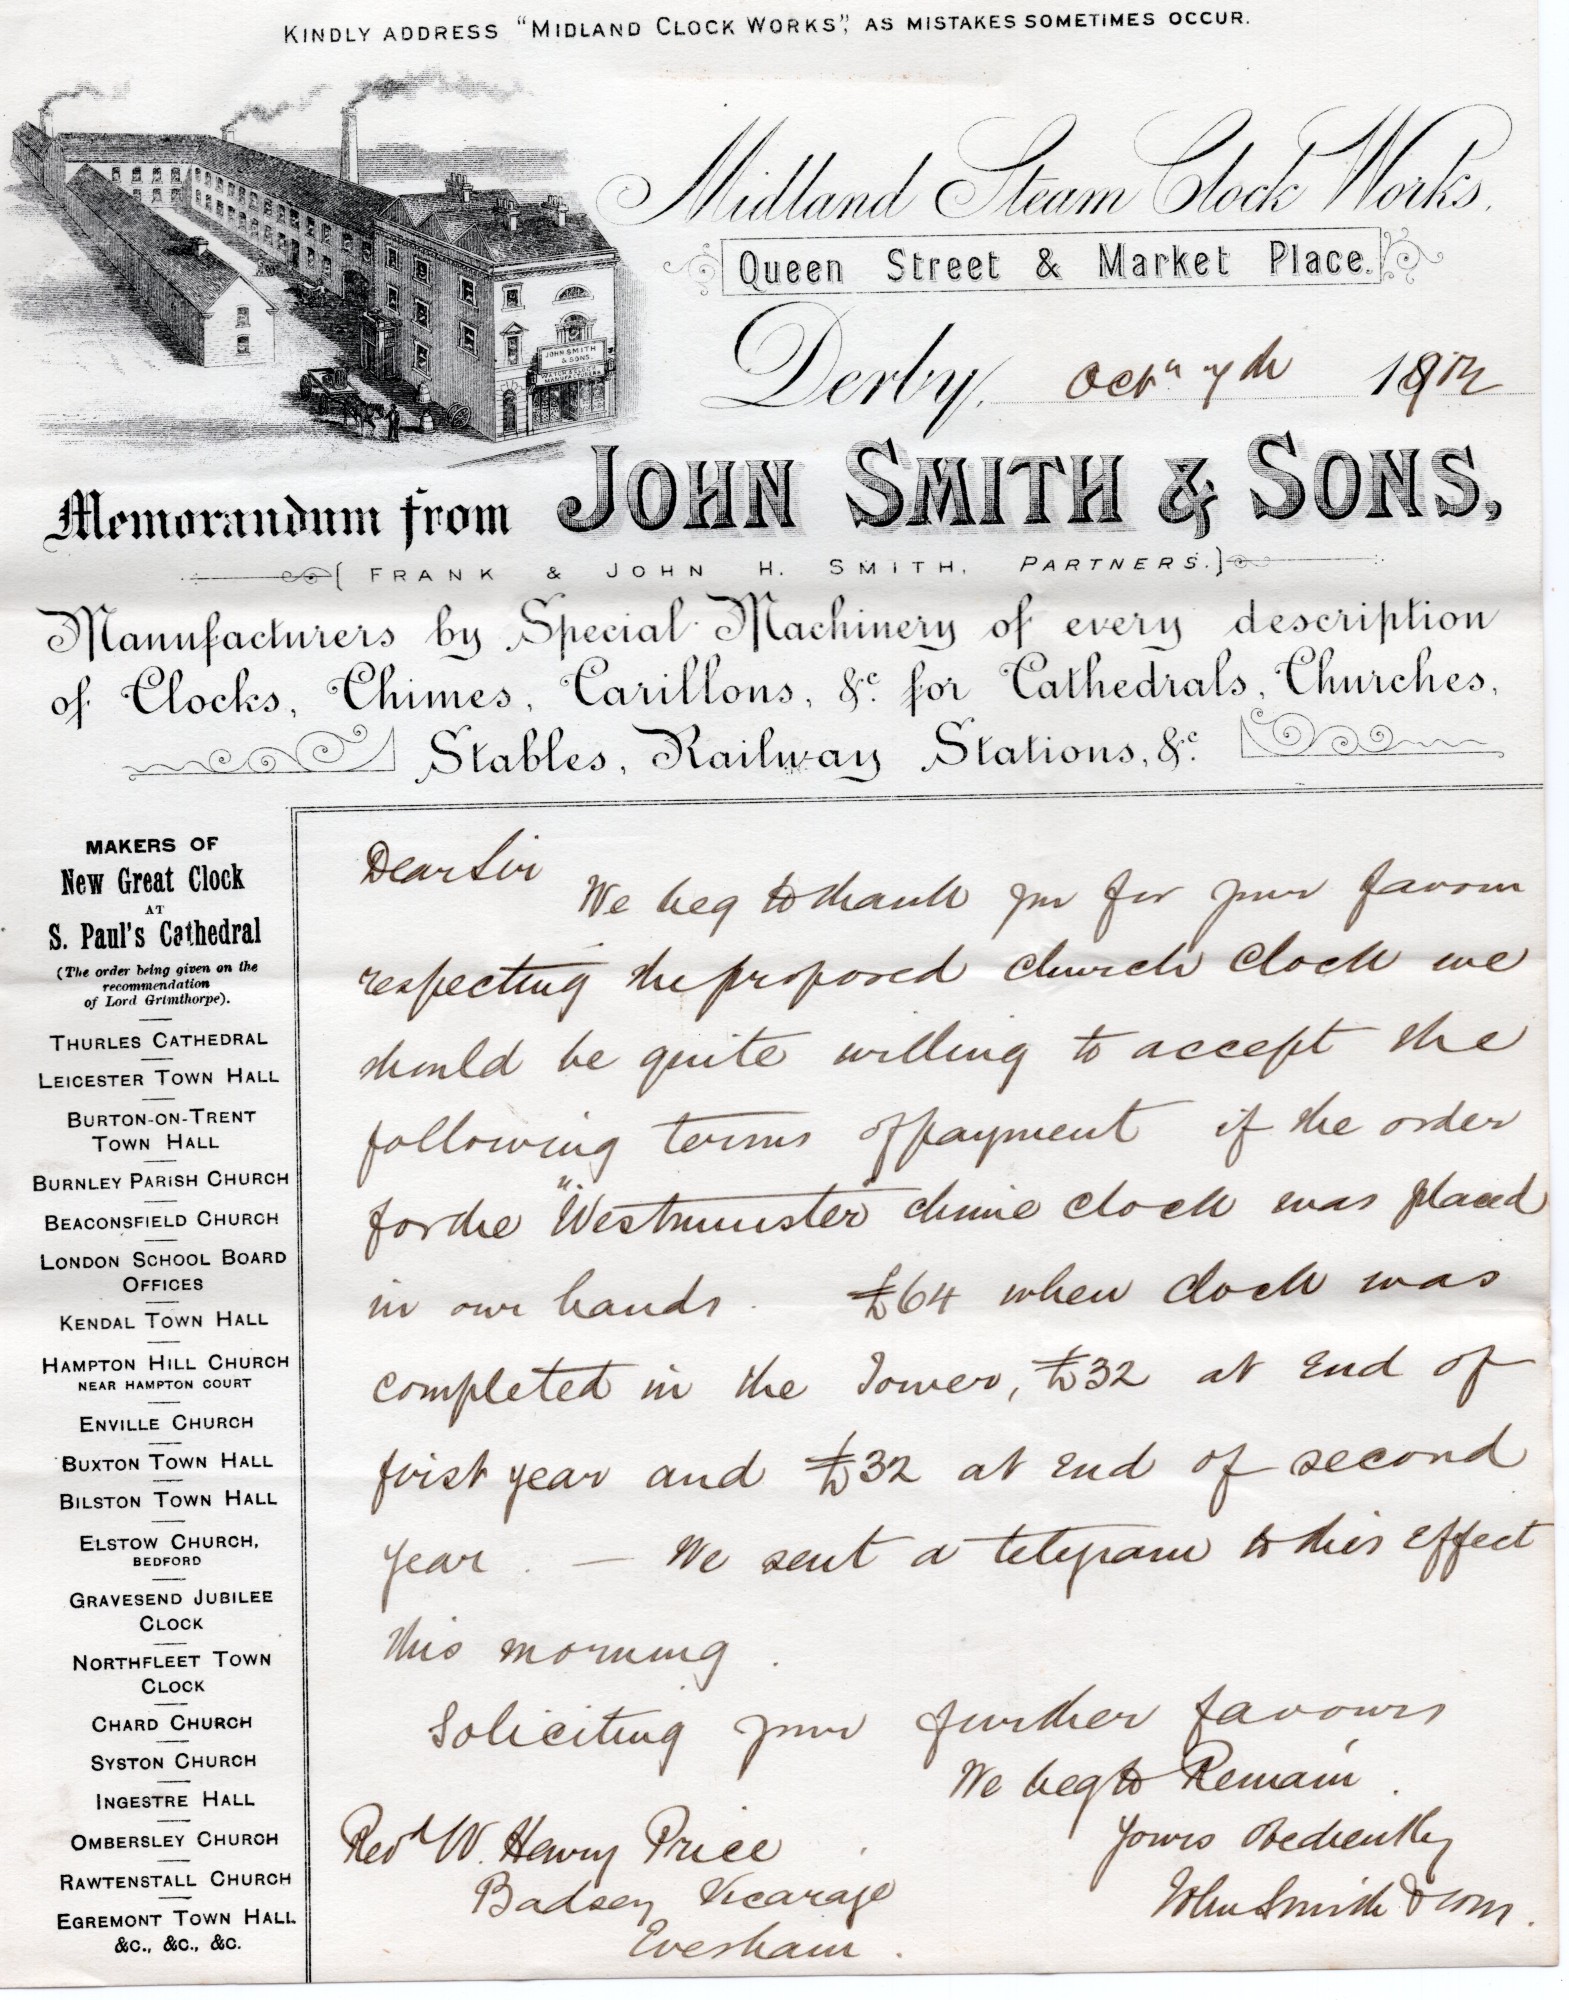 KINDLY ADDRESS "MIDLAND CLOCK WORKS", AS MISTAKES SOMETIMES OCCUR.
Midland Steam Clock Works.
Queen Street & Market Place.
Derby, Octr 7th
JOHN SMITH
& SONS.
Memorandum from JOHN SMITH & SONS,
(FRANK & JOHN H. SMITH, PARTNERS.)
Manufacturers by Special Machinery of every description
of Clocks, Chimes, Carillons, &c. for Cathedrals, Churches,
Stables, Railway Stations, &c.
MAKERS OF
New Great Clock
AT
S. Paul's Cathedral
(The order being given on the
recommendation
of Lord Grimthorpe).
THURLES CATHEDRAL
LEICESTER TOWN HALL
BURTON-ON-TRENT
TOWN HALL
BURNLEY PARISH CHURCH
BEACONSFIELD CHURCH
LONDON SCHOOL BOARD
OFFICES
KENDAL TOWN HALL
HAMPTON HILL CHURCH
NEAR HAMPTON COURT
ENVILLE CHURCH
BUXTON TOWN HALL
BILSTON TOWN HALL
ELSTOW CHURCH,
BEDFORD
GRAVESEND JUBILEE
CLOCK
NORTHFLEET TOWN
CLOCK
CHARD CHURCH
SYSTON CHURCH
INGESTRE HALL
OMBERSLEY CHURCH
RAWTENSTALL CHURCH
EGREMONT TOWN HALL
&C., &C., &C.
Dear Sir
We beg to thank you for your favour
respecting the proposed church clock we
should be quite willing to accept the
following terms of payment if the order
for the "Westminster" chime clock was placed
in our hands. £64 when clock was
completed in the Tower, £32 at end of
first year and £32 at end of second
year. — We sent a telegram to this effect
this morning.
Soliciting your further favours
We beg to Remain.
Yours Obediently
John Smith & Sons.
Revd W. Henry Price
Badsey Vicarage
Evesham.